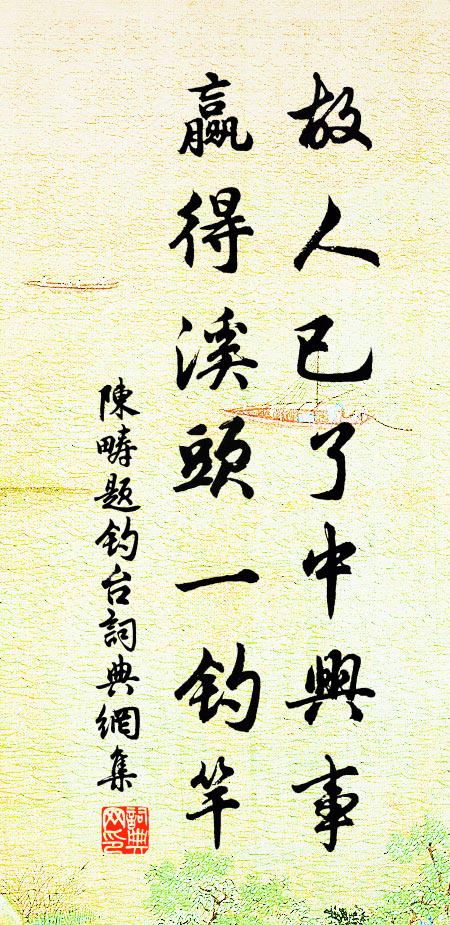 故人已了中興事
贏得溪頭一釣竿
陳疇題釣台詞典網集
詞典網印